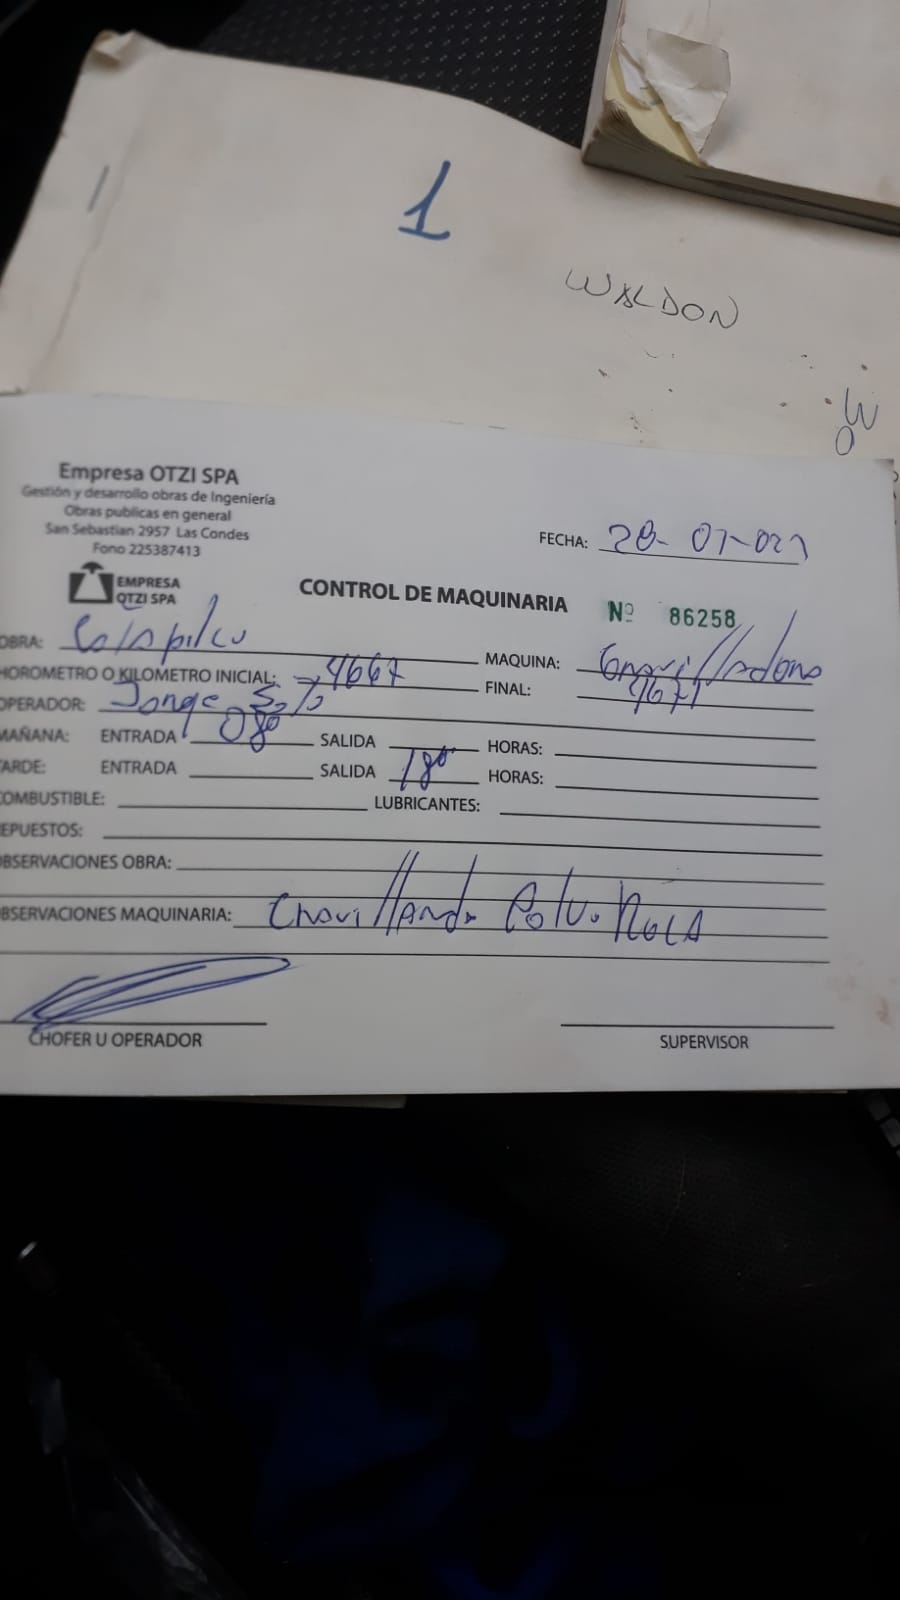 1
WALDON
W
O
Empresa OTZI SPA
Gestión y desarrollo obras de Ingeniería
Obras publicas en general
San Sebastian 2957 Las Condes
Fono 225387413
EMPRESA
OTZI SPA
FECHA: 28-01-021
CONTROL DE MAQUINARIA Nº 86258
OBRA: MAQUINA:
HOROMETRO O KILOMETRO INICIAL: 4667 FINAL: 4671
OPERADOR: Jorge Soto
MAÑANA: ENTRADA 08⁰⁰ SALIDA HORAS:
TARDE: ENTRADA SALIDA 18⁰⁰ HORAS:
COMBUSTIBLE: LUBRICANTES:
REPUESTOS:
OBSERVACIONES OBRA:
OBSERVACIONES MAQUINARIA: Roca
CHOFER U OPERADOR
SUPERVISOR